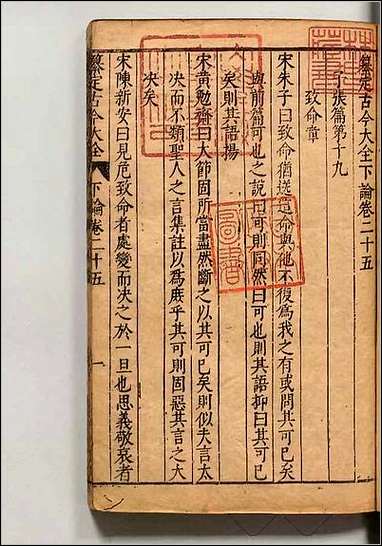 纂定古今大全下論卷二十五
子張篇第十九
致命章
宋朱子曰致命猶送這命與他不復爲我之有或問其可已矣
與前篇可也之說曰可則同然曰可也則其語抑曰其可已
矣則其語揚
宋黃勉齋曰大節固所當盡然斷之以其可已矣則似夫言太
決而不類聖人之言集註以爲庶乎其可則固惡其言之大
決矣
宋陳新安曰見危致命者處變而決之於一旦也思義敬哀者
纂定古今大全 下論卷二十五 一